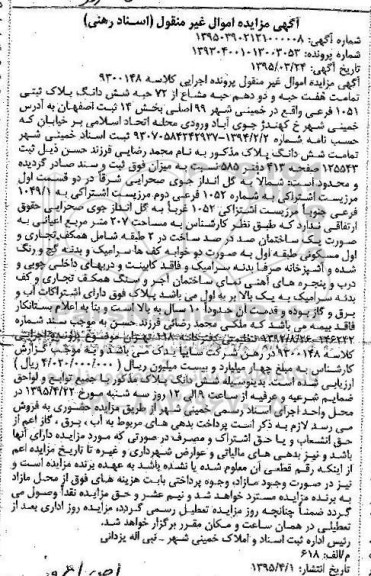 آگهی مزایده اموال غیر منقول (اسناد رهنی)
شماره آگهی: ۱۳۹۵۰۳۹۰۲۱۳۱۰۰۰۰۰۸
شماره پرونده: ۱۳۹۳۰۴۰۰۱۰۱۳۰۰۳۰۵۳
تاریخ آگهی: ۱۳۹۵/۰۳/۲۴
آگهی مزایده اموال غیر منقول پرونده اجرایی کلاسه ۹۳۰۰۱۴۸
تمامت هفت حبه و دو دهم حبه مشاع از ۷۲ حبه شش دانگ پلاک ثبتی
۱۰۵۱ فرعی واقع در خمینی شهر ۹۹ اصلی بخش ۱۴ ثبت اصفهان به آدرس
خمینی شهر خ کهندژ جوی آباد ورودی محله اتحاد اسلامی بر خیابان که
حسب نامه شماره ۹۳۰۷۰۵۸۴۲۴۲۹۳۷-۱۳۹۴/۲/۲ ثبت اسناد خمینی شهر
تمامت شش دانگ پلاک مذکور به نام محمد رضایی فرزند حسن ذیل ثبت
۱۲۵۵۴۳ صفحه ۴۱۳ دفتر ۵۸۵ نسبت به میزان فوق ثبت و سند صادر گردیده
و محدود است: شمالاً به گل انداز جوی صحرایی شرقاً در دو قسمت اول
مرزیست اشتراکی به شماره ۱۰۵۲ فرعی دوم مرزیست اشتراکی به ۱۰۴۹/۱
فرعی جنوباً مرزیست اشتراکی ۱۰۵۲ غرباً به گل انداز جوی صحرایی حقوق
ارتفاقی ندارد که طبق نظر کارشناس به مساحت ۲۰۷ متر مربع اعیانی به
صورت یک ساختمان صد در صد ساخت در ۲ طبقه شامل همکف تجاری و
اول مسکونی طبقه اول به صورت دو خوابه کف ها سرامیک و بدنه گچ و رنگ
شده و آشپزخانه صرفا بدنه سرامیک و فاقد کابینت و دربهای داخلی چوبی و
درب و پنجره های آهنی نمای ساختمان آجر و سنگ همکف تجاری و کف
بدنه سرامیک به یک بالابر به اول می باشد پلاک فوق دارای اشتراکات آب و
برق و گاز بوده و قدمت آن حدوداً ۱۰ سال به بالا است و بنا به اعلام بستانکار
فاقد بیمه می باشد که ملکی محمد رضائی فرزند حسن به موجب سند شماره
۱۴۶۲۴۲-۱۳۸۷/۸/۲۶ تنظیمی دفترخانه ۲۹۸ تهران موضوع پرونده اجرایی
کلاسه ۹۳۰۰۱۴۸ در رهن شرکت سایپا یدک می باشد و به موجب گزارش
کارشناس به مبلغ چهار میلیارد و بیست میلیون ریال (۴/۰۲۰/۰۰۰/۰۰۰ ریال)
ارزیابی شده است. بدینوسیله شش دانگ پلاک مذکور با جمیع توابع و لواحق
ضمایم شرعیه و عرفیه از ساعت ۹ الی ۱۲ روز سه شنبه مورخ ۱۳۹۵/۴/۲۲ در
محل واحد اجرای اسناد رسمی خمینی شهر از طریق مزایده حضوری به فروش
می رسد لازم به ذکر است پرداخت بدهی های مربوط به آب، برق، گاز اعم از
حق انشعاب و یا حق اشتراک و مصرف در صورتی که مورد مزایده دارای آنها
باشد و نیز بدهی های مالیاتی و عوارض شهرداری و غیره تا تاریخ مزایده اعم
از اینکه رقم قطعی آن معلوم شده یا نشده باشد به عهده برنده مزایده است و
نیز در صورت وجود مازاد، وجوه پرداختی بابت هزینه های فوق از محل مازاد
به برنده مزایده مسترد خواهد شد و نیم عشر و حق مزایده نقداً وصول می
گردد ضمناً چنانچه روز مزایده تعطیل رسمی گردد، مزایده روز اداری بعد از
تعطیلی در همان ساعت و مکان مقرر برگزار خواهد شد.
رئیس اداره ثبت اسناد و املاک خمینی شهر - نبی آله یزدانی
م/الف: ۶۱۸
تاریخ انتشار: ۱۳۹۵/۴/۱